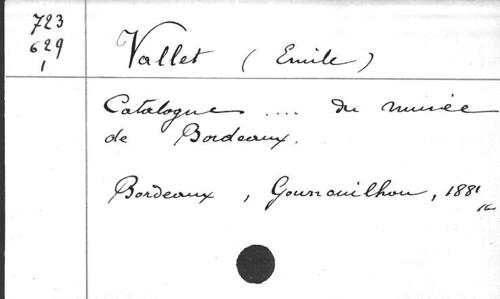 723
629
1
Vallet (Emile)
Catalogue .... du musée
de Bordeaux.
Bordeaux, Gounouilhou, 1881